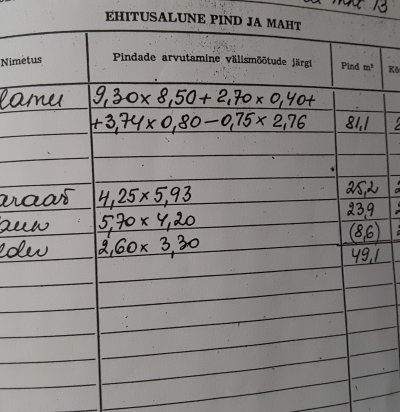 EHITUSALUNE PIND JA MAHT
Nimetus Pindade arvutamine välismõõtude järgi Pind m²
9,30 x 8,50 + 2,70 x 0,40 +
+ 3,74 x 0,80 - 0,75 x 2,76 81,1
4,25 x 5,93 25,2
5,70 x 4,20 23,9
2,60 x 3,30 (8,6)
49,1